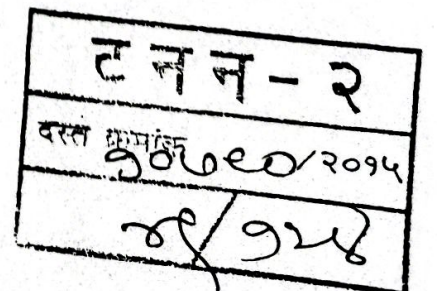 ट न न - २
दस्त क्रमांक १०७९०/२०१५
/१२४